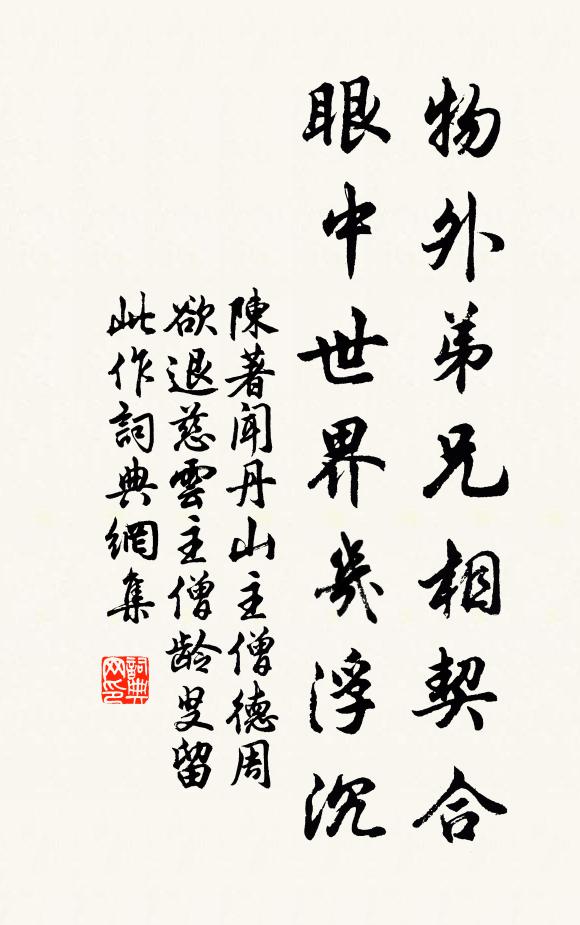 物外弟兄相契合
眼中世界幾浮沉
陳著聞丹山主僧德周
欲退慈雲主僧龄叟留
此作詞典網集
詞典网印